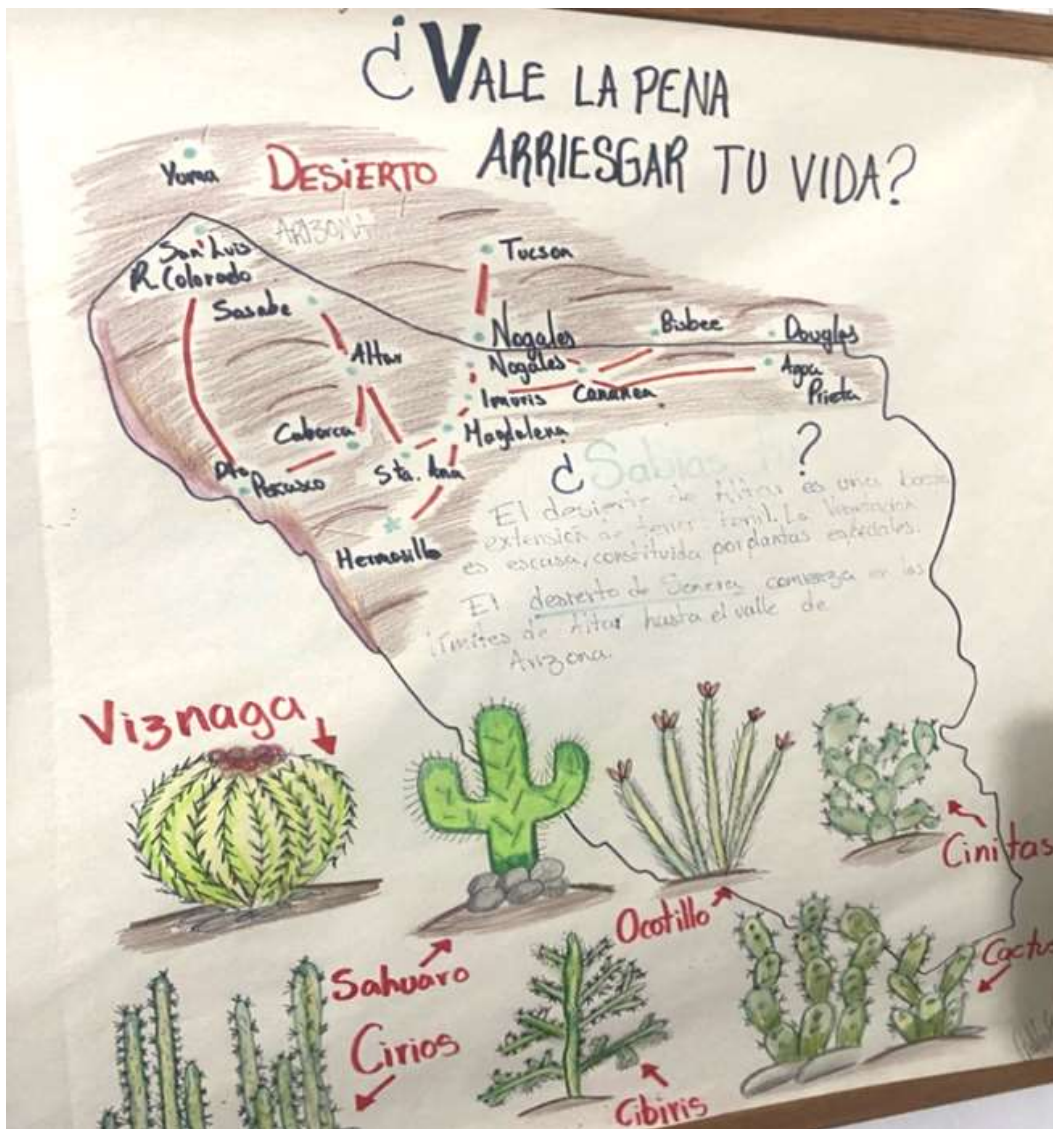 ¿VALE LA PENA
ARRIESGAR TU VIDA?
Yuma
DESIERTO
ARIZONA
San Luis
R. Colorado
Tucson
Sasabe
Nogales
Bisbee
Douglas
Altar
Nogales
Imuris
Cananea
Agua
Prieta
Caborca
Magdalena
Sta. Ana
Pto
Peñasco
Hermosillo
¿Sabias ?
El desierto de Altar es una
extensión de
es escasa, constituida por plantas especiales.
El desierto de Sonora comienza en los
límites de Altar hasta el valle de
Arizona.
Viznaga
Cinitas
Ocotillo
Sahuaro
Cactus
Cirios
Cibiris